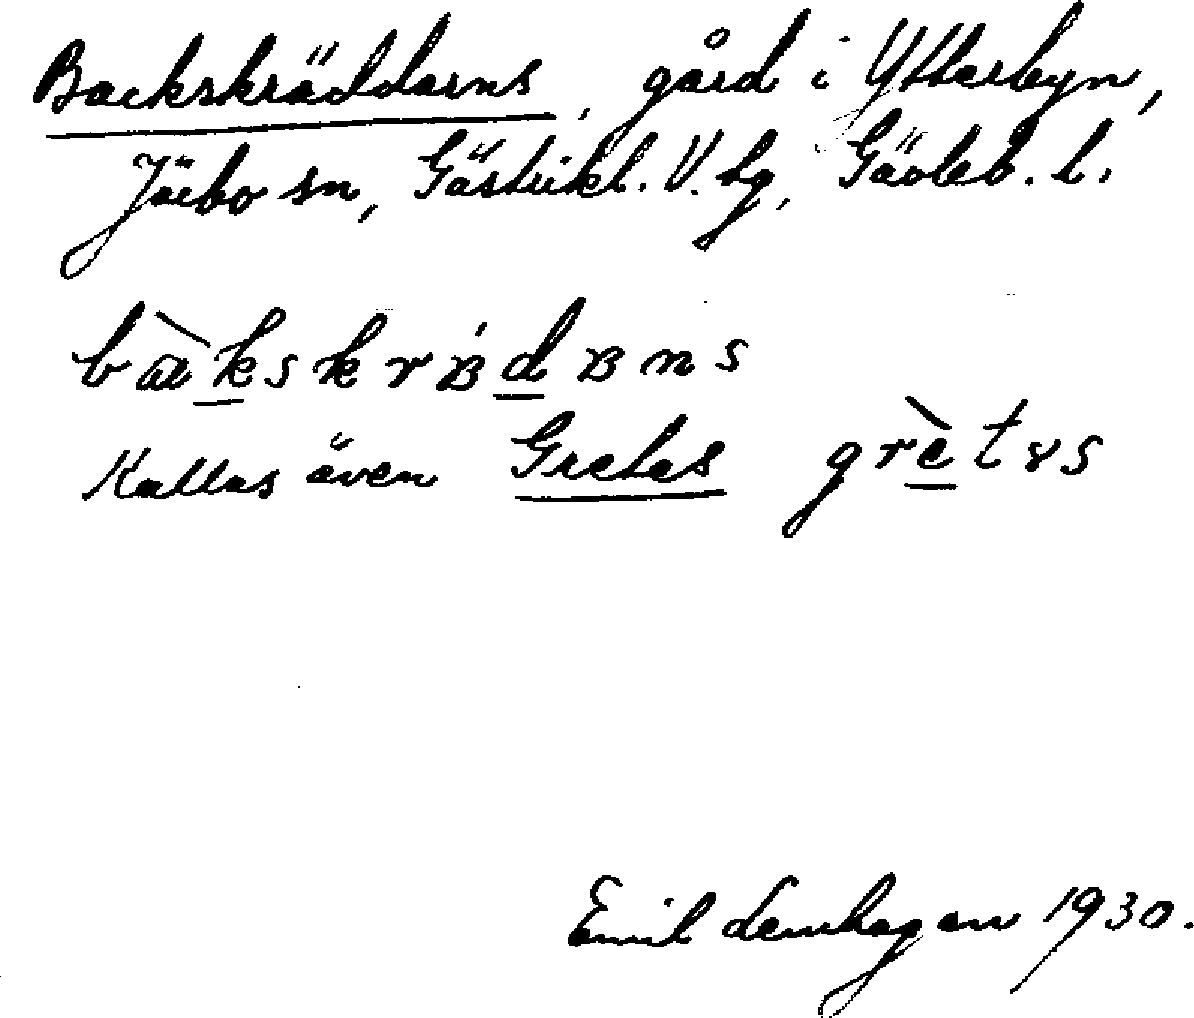 Backskräddarns, gård i Ytterbyn,
Järbo sn, Gästrikl. V. tg, Gävleb. l.
bàkskrädäns
Kallas även Gretas grètas
Emil Lemhagen 1930.